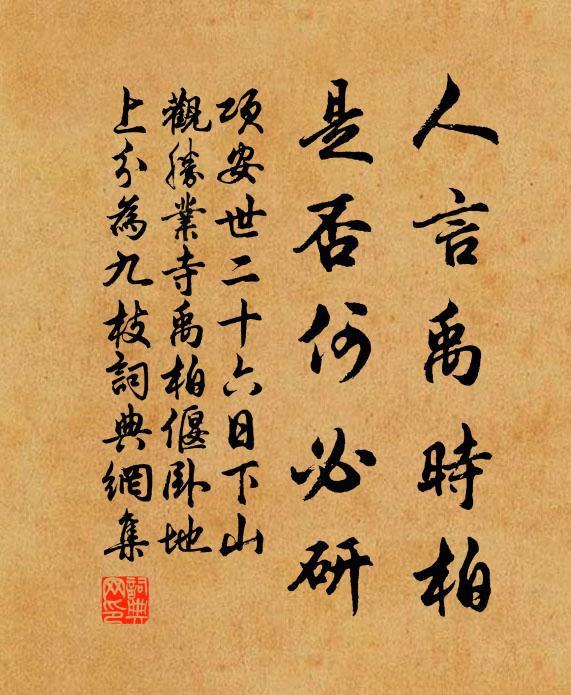 人言禹時柏
是否何必研
項安世二十六日下山
觀勝業寺禹柏偃卧地
上分為九枝詞典網集
詞典
网印